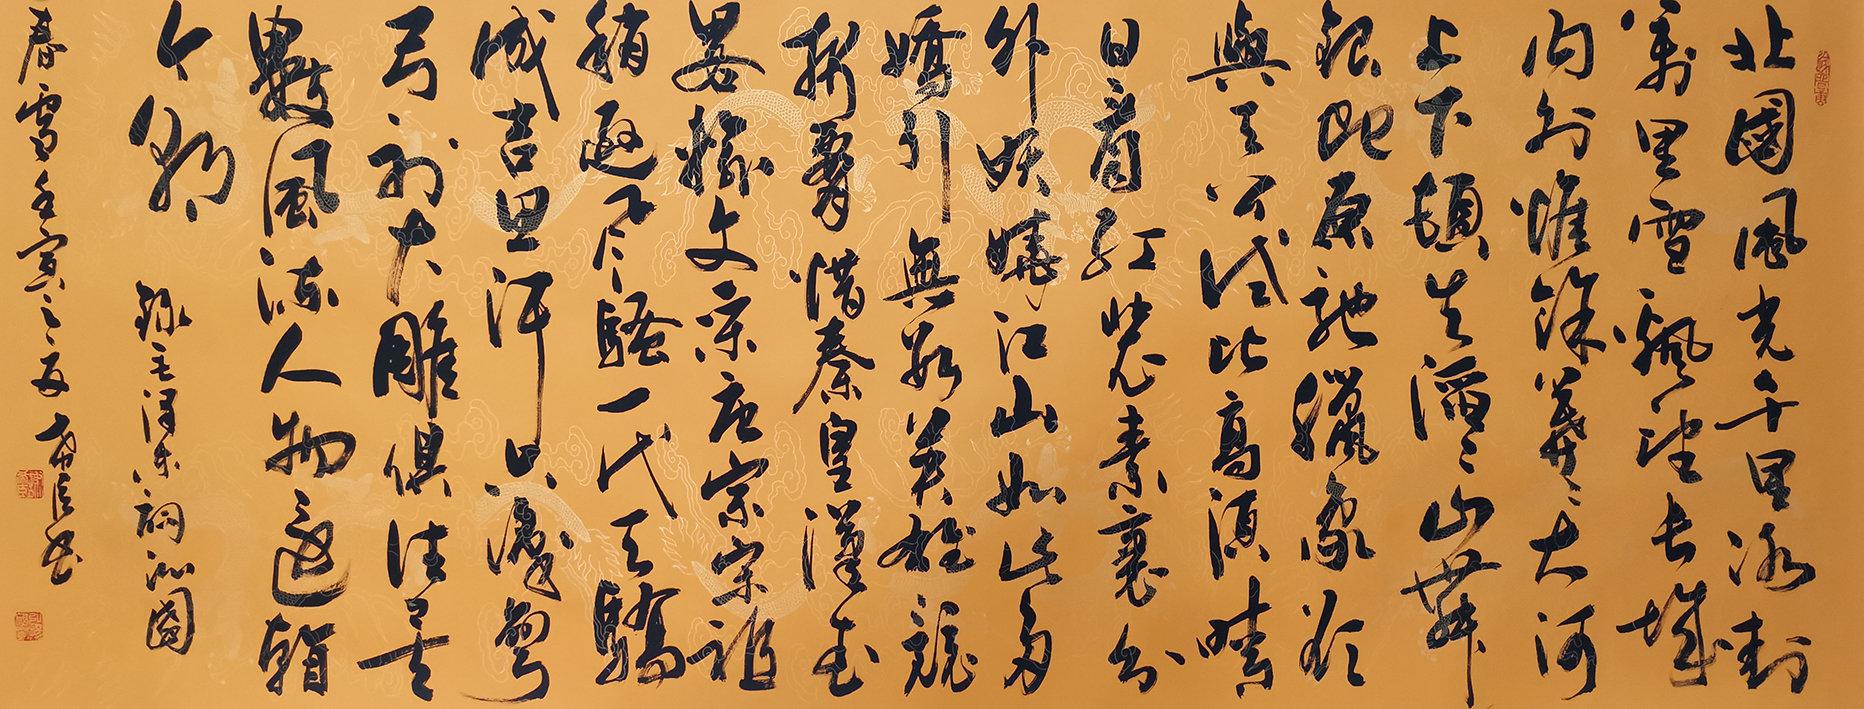 北國風光千里冰封
萬里雪飄望長城
内外惟餘莽々大河
上下頓失滔々山舞
銀蛇原馳臘象欲
與天公試比高須晴
日看紅裝素裹分
外妖嬈江山如此多
嬌引無數英雄競
折腰惜秦皇漢武
略輸文采唐宗宋祖
稍遜風騷一代天驕
成吉思汗只識彎
弓射大雕俱往矣
數風流人物還
今朝
錄毛澤東詞沁園
春雪壬寅之夏書